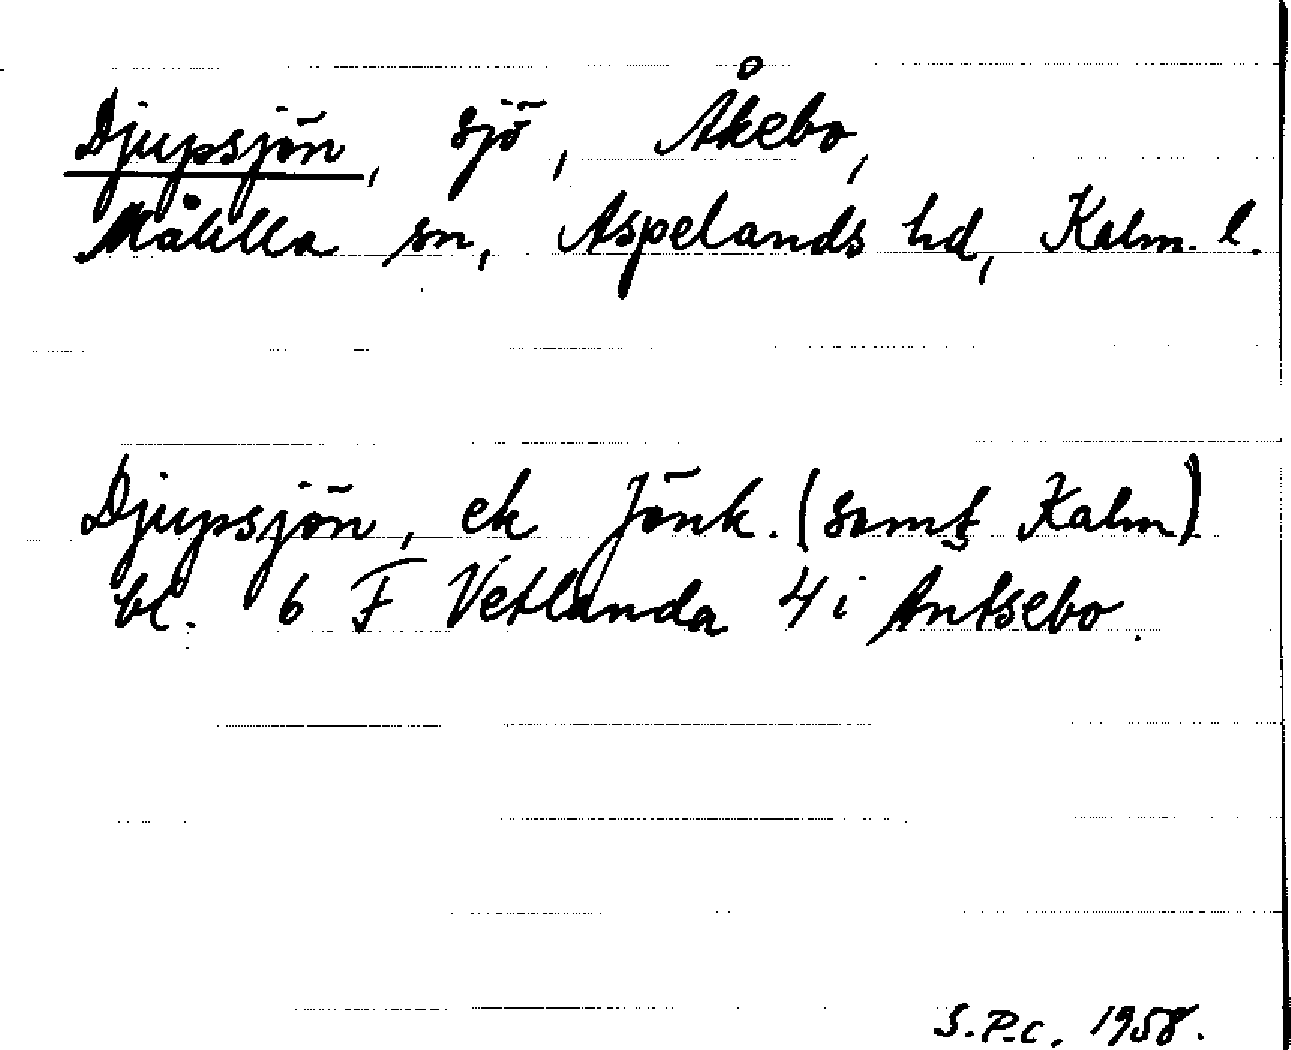 Djupsjön, sjö, Åkebo,
Målilla sn, Aspelands hd, Kalm. l.
Djupsjön, ek Jönk. (samt Kalm)
bl. 6 F Vetlanda 4 i Antsebo.
S.P.C. 1958.